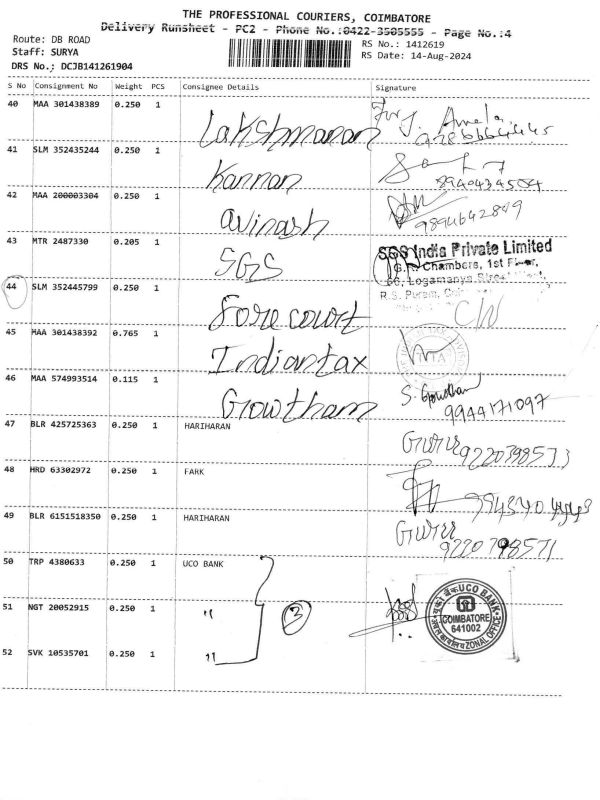 THE PROFESSIONAL COURIERS, COIMBATORE
Delivery Runsheet - PC2 - Phone No.:0422-3505555 - Page No.:4
Route: DB ROAD
Staff: SURYA
DRS No.; DCJB141261904
RS No.: 1412619
RS Date: 14-Aug-2024
S No Consignment No Weight PCS Consignee Details Signature
40 MAA 301438389 0.250 1 Lakshmanan For J.
41 SLM 352435244 0.250 1 Kannan
42 MAA 200003304 0.250 1 avinash 9894642849
43 MTR 2487330 0.205 1 SGS
SGS India Private Limited
Chambers, 1st Floor,
66, Logamanya Street
R.S. Puram,
44 SLM 352445799 0.250 1 Forecourt
45 MAA 301438392 0.765 1 Indiantax
46 MAA 574993514 0.115 1 Growtham S. Gowtham
9944171097
47 BLR 425725363 0.250 1 HARIHARAN
48 HRD 63302972 0.250 1 FARK
49 BLR 6151518350 0.250 1 HARIHARAN
50 TRP 4380633 0.250 1 UCO BANK
51 NGT 20052915 0.250 1 " 3
UCO BANK
COIMBATORE
641002
ZONAL OFFICE
52 SVK 10535701 0.250 1 "